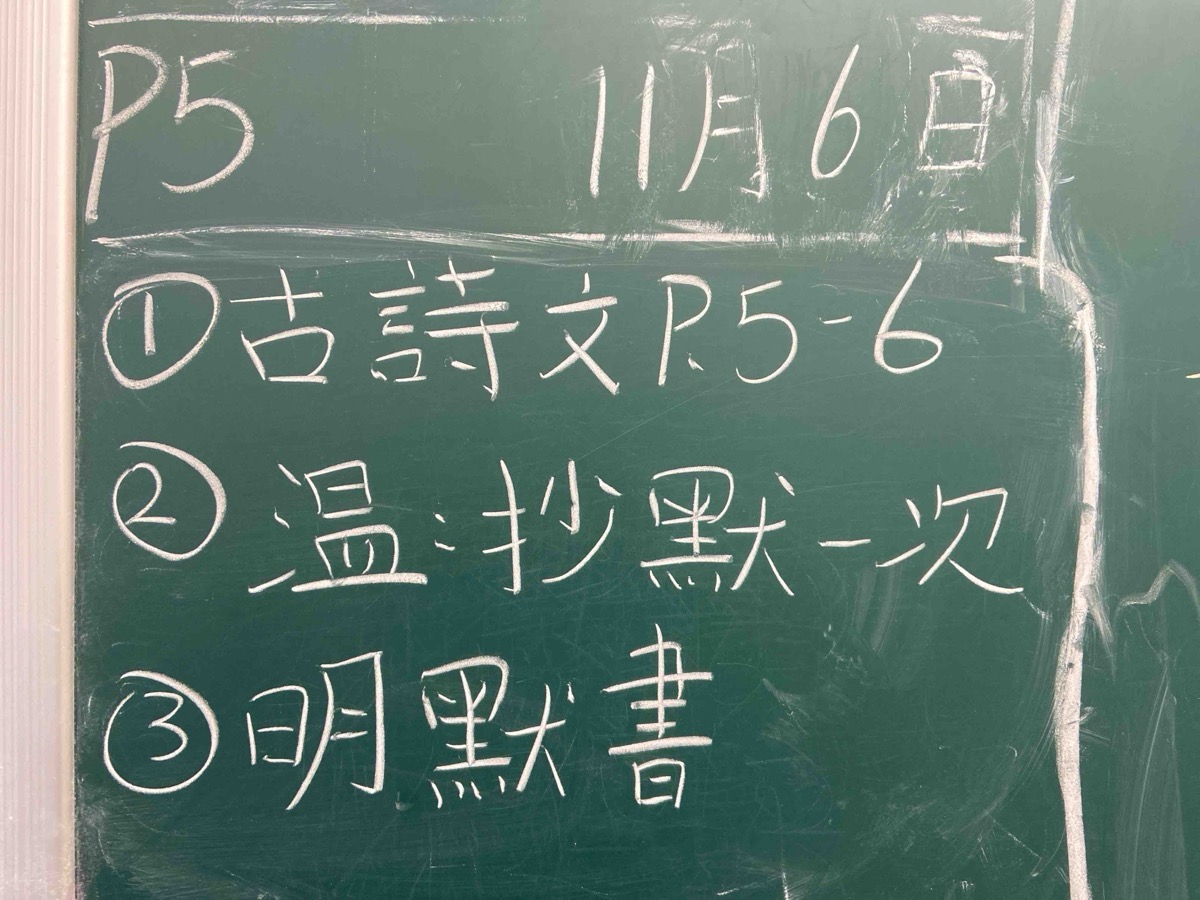 P5 11月6日
①古詩文P.5-6
②温:抄默一次
③明默書